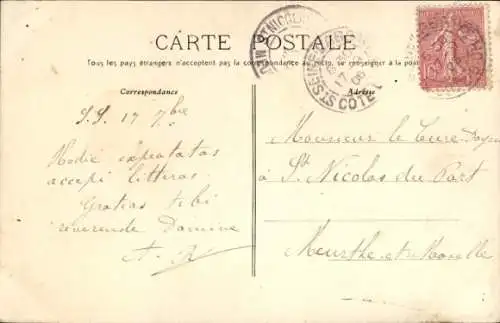 CARTE POSTALE
Tous les pays étrangers n'acceptent pas la correspondance au recto, se renseigner à la poste
Correspondance
Adresse
S.S. 17 7bre
Hodie expectatas
accepi litteras
Gratias tibi
reverende Domine
A. R
Monsieur le Curé Doyen
à St Nicolas du Port
Meurthe et Moselle
ST NICOLAS
17
06
COTE D